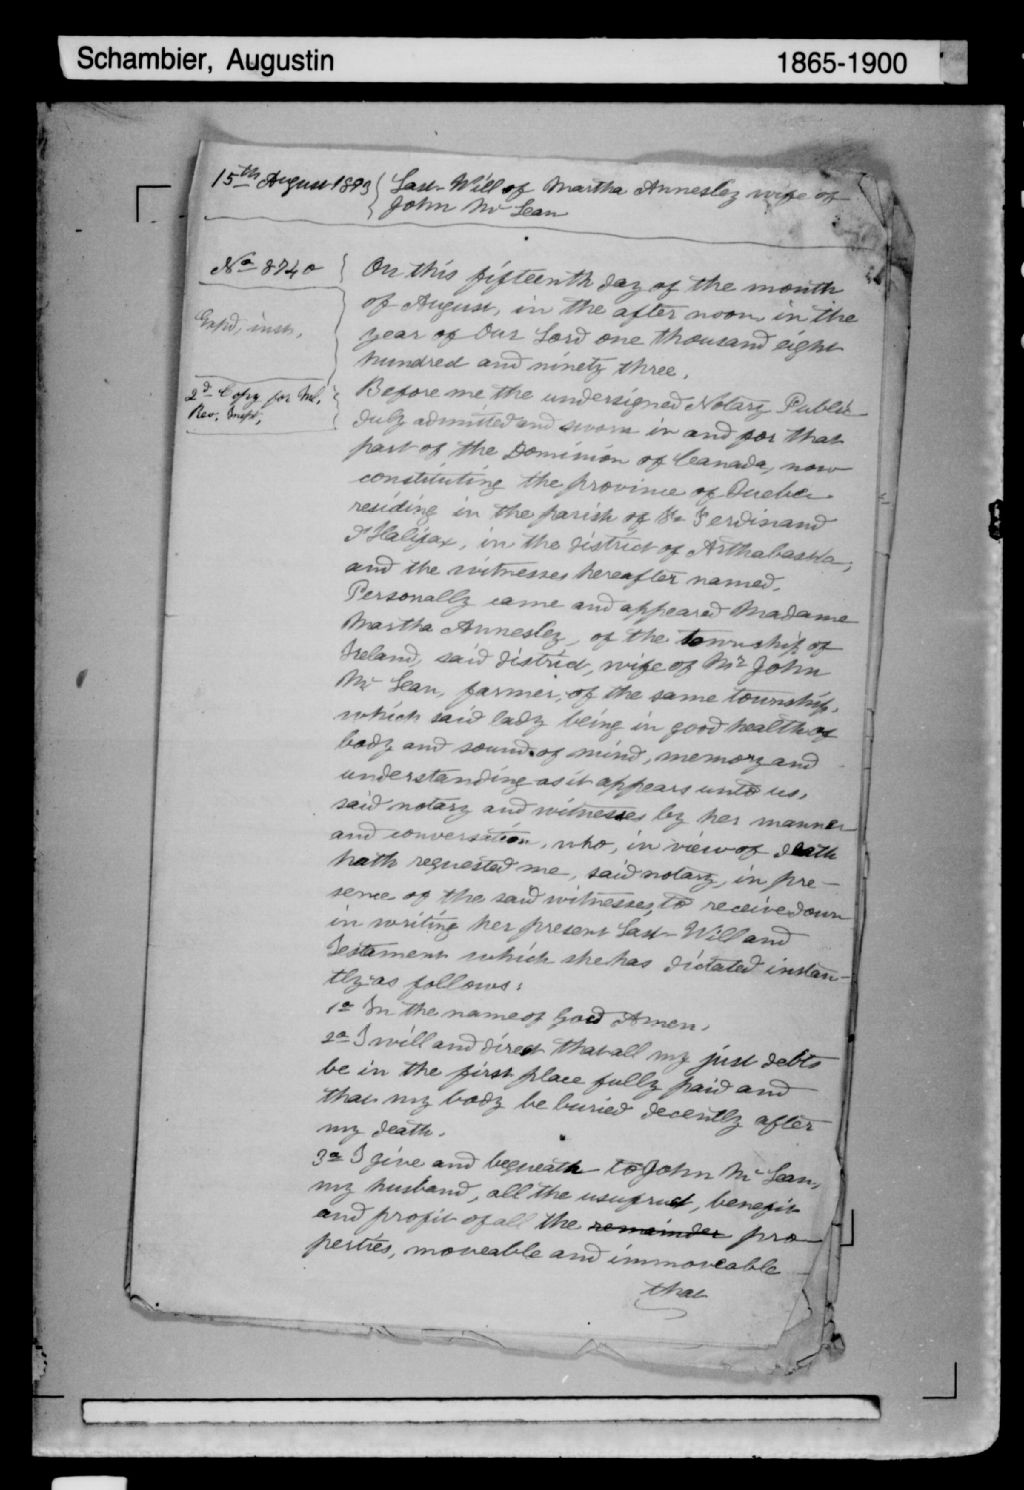 Schambier, Augustin 1865-1900
15th August 1893 Last Will of Martha Annesley wife of
John Mc Lean
No 8740
On this fifteenth day of the month
of August, in the after noon, in the
year of Our Lord one thousand eight
hundred and ninety three.
Before me the undersigned Notary Public
duly admitted and sworn in and for that
part of the Dominion of Canada, now
constituting the province of Quebec
residing in the parish of St Ferdinand
d'Halifax, in the district of Arthabaska,
and the witnesses hereafter named.
Personally came and appeared Madame
Martha Annesley, of the township of
Ireland, said district, wife of Mr John
Mc Lean, farmer, of the same township,
which said lady being in good health of
body and sound of mind, memory and
understanding as it appears unto us,
said notary and witnesses by her manner
and conversation, who, in view of death
hath requested me, said notary, in pre-
sence of the said witnesses, to receive down
in writing her present Last Will and
Testament which she has dictated instan-
tly as follows:
1o In the name of God Amen.
2o I will and direct that all my just debts
be in the first place fully paid and
that my body be buried decently after
my death.
3o I give and bequeath to John Mc Lean,
my husband, all the usufruct, benefit
and profit of all the remainder pro
perties, moveable and immoveable
that
2d Copy for